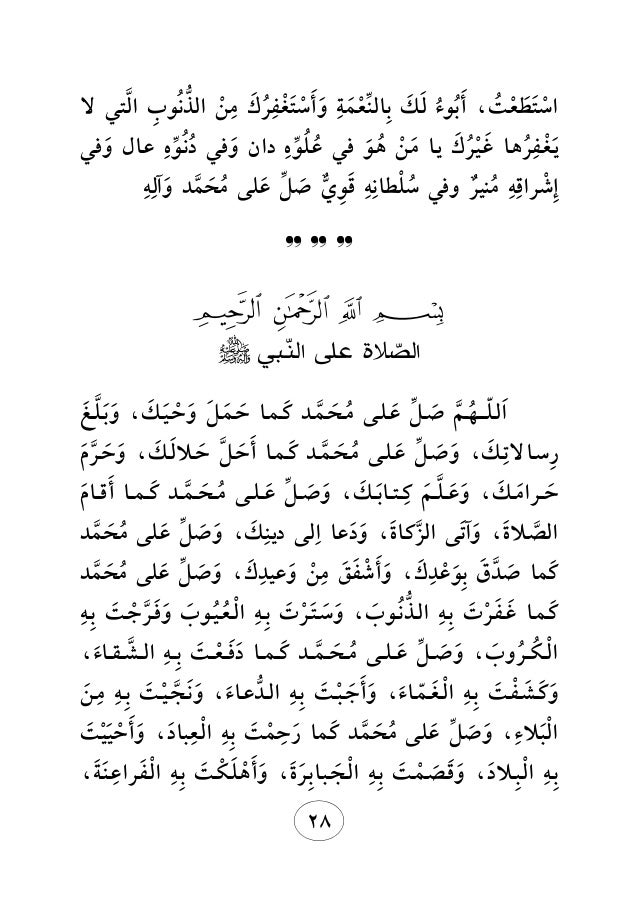 اسْتَطَعْتُ ، أَبُوءُ لَكَ بِالنِّعْمَةِ وَأَسْتَغْفِرُكَ مِنْ الذُّنُوبِ الَّتي لا
يَغْفِرُها غَيْرُكَ يا مَنْ هُوَ في عُلُوِّهِ دان وَفي دُنُوِّهِ عال وَفي
إِشْراقِهِ مُنيرٌ وفي سُلْطانِهِ قَوِيٌّ صَلِّ عَلى مُحَمَّد وَآلِهِ
بِسْمِ ٱللَّهِ ٱلرَّحْمَٰنِ ٱلرَّحِيمِ
الصّلاة على النّبي ﷺ
اَللّـهُمَّ صَلِّ عَلى مُحَمَّد كَما حَمَلَ وَحْيَكَ ، وَبَلَّغَ
رِسالاتِكَ ، وَصَلِّ عَلى مُحَمَّد كَما أَحَلَّ حَلالَكَ ، وَحَرَّمَ
حَرامَكَ ، وَعَلَّمَ كِتابَكَ ، وَصَلِّ عَلى مُحَمَّد كَما أَقامَ
الصَّلاةَ ، وَآتَى الزَّكاةَ ، وَدَعا اِلى دينِكَ ، وَصَلِّ عَلى مُحَمَّد
كَما صَدَّقَ بِوَعْدِكَ ، وَأَشْفَقَ مِنْ وَعيدِكَ ، وَصَلِّ عَلى مُحَمَّد
كَما غَفَرْتَ بِهِ الذُّنُوبَ ، وَسَتَرْتَ بِهِ الْعُيُوبَ وَفَرَّجْتَ بِهِ
الْكُرُوبَ ، وَصَلِّ عَلى مُحَمَّد كَما دَفَعْتَ بِهِ الشَّقاءَ ،
وَكَشَفْتَ بِهِ الْغَمّاءَ ، وَأَجَبْتَ بِهِ الدُّعاءَ ، وَنَجَّيْتَ بِهِ مِنَ
الْبَلاءِ ، وَصَلِّ عَلى مُحَمَّد كَما رَحِمْتَ بِهِ الْعِبادَ ، وَأَحْيَيْتَ
بِهِ الْبِلادَ ، وَقَصَمْتَ بِهِ الْجَبابِرَةَ ، وَأَهْلَكْتَ بِهِ الْفَراعِنَةَ ،
٢٨